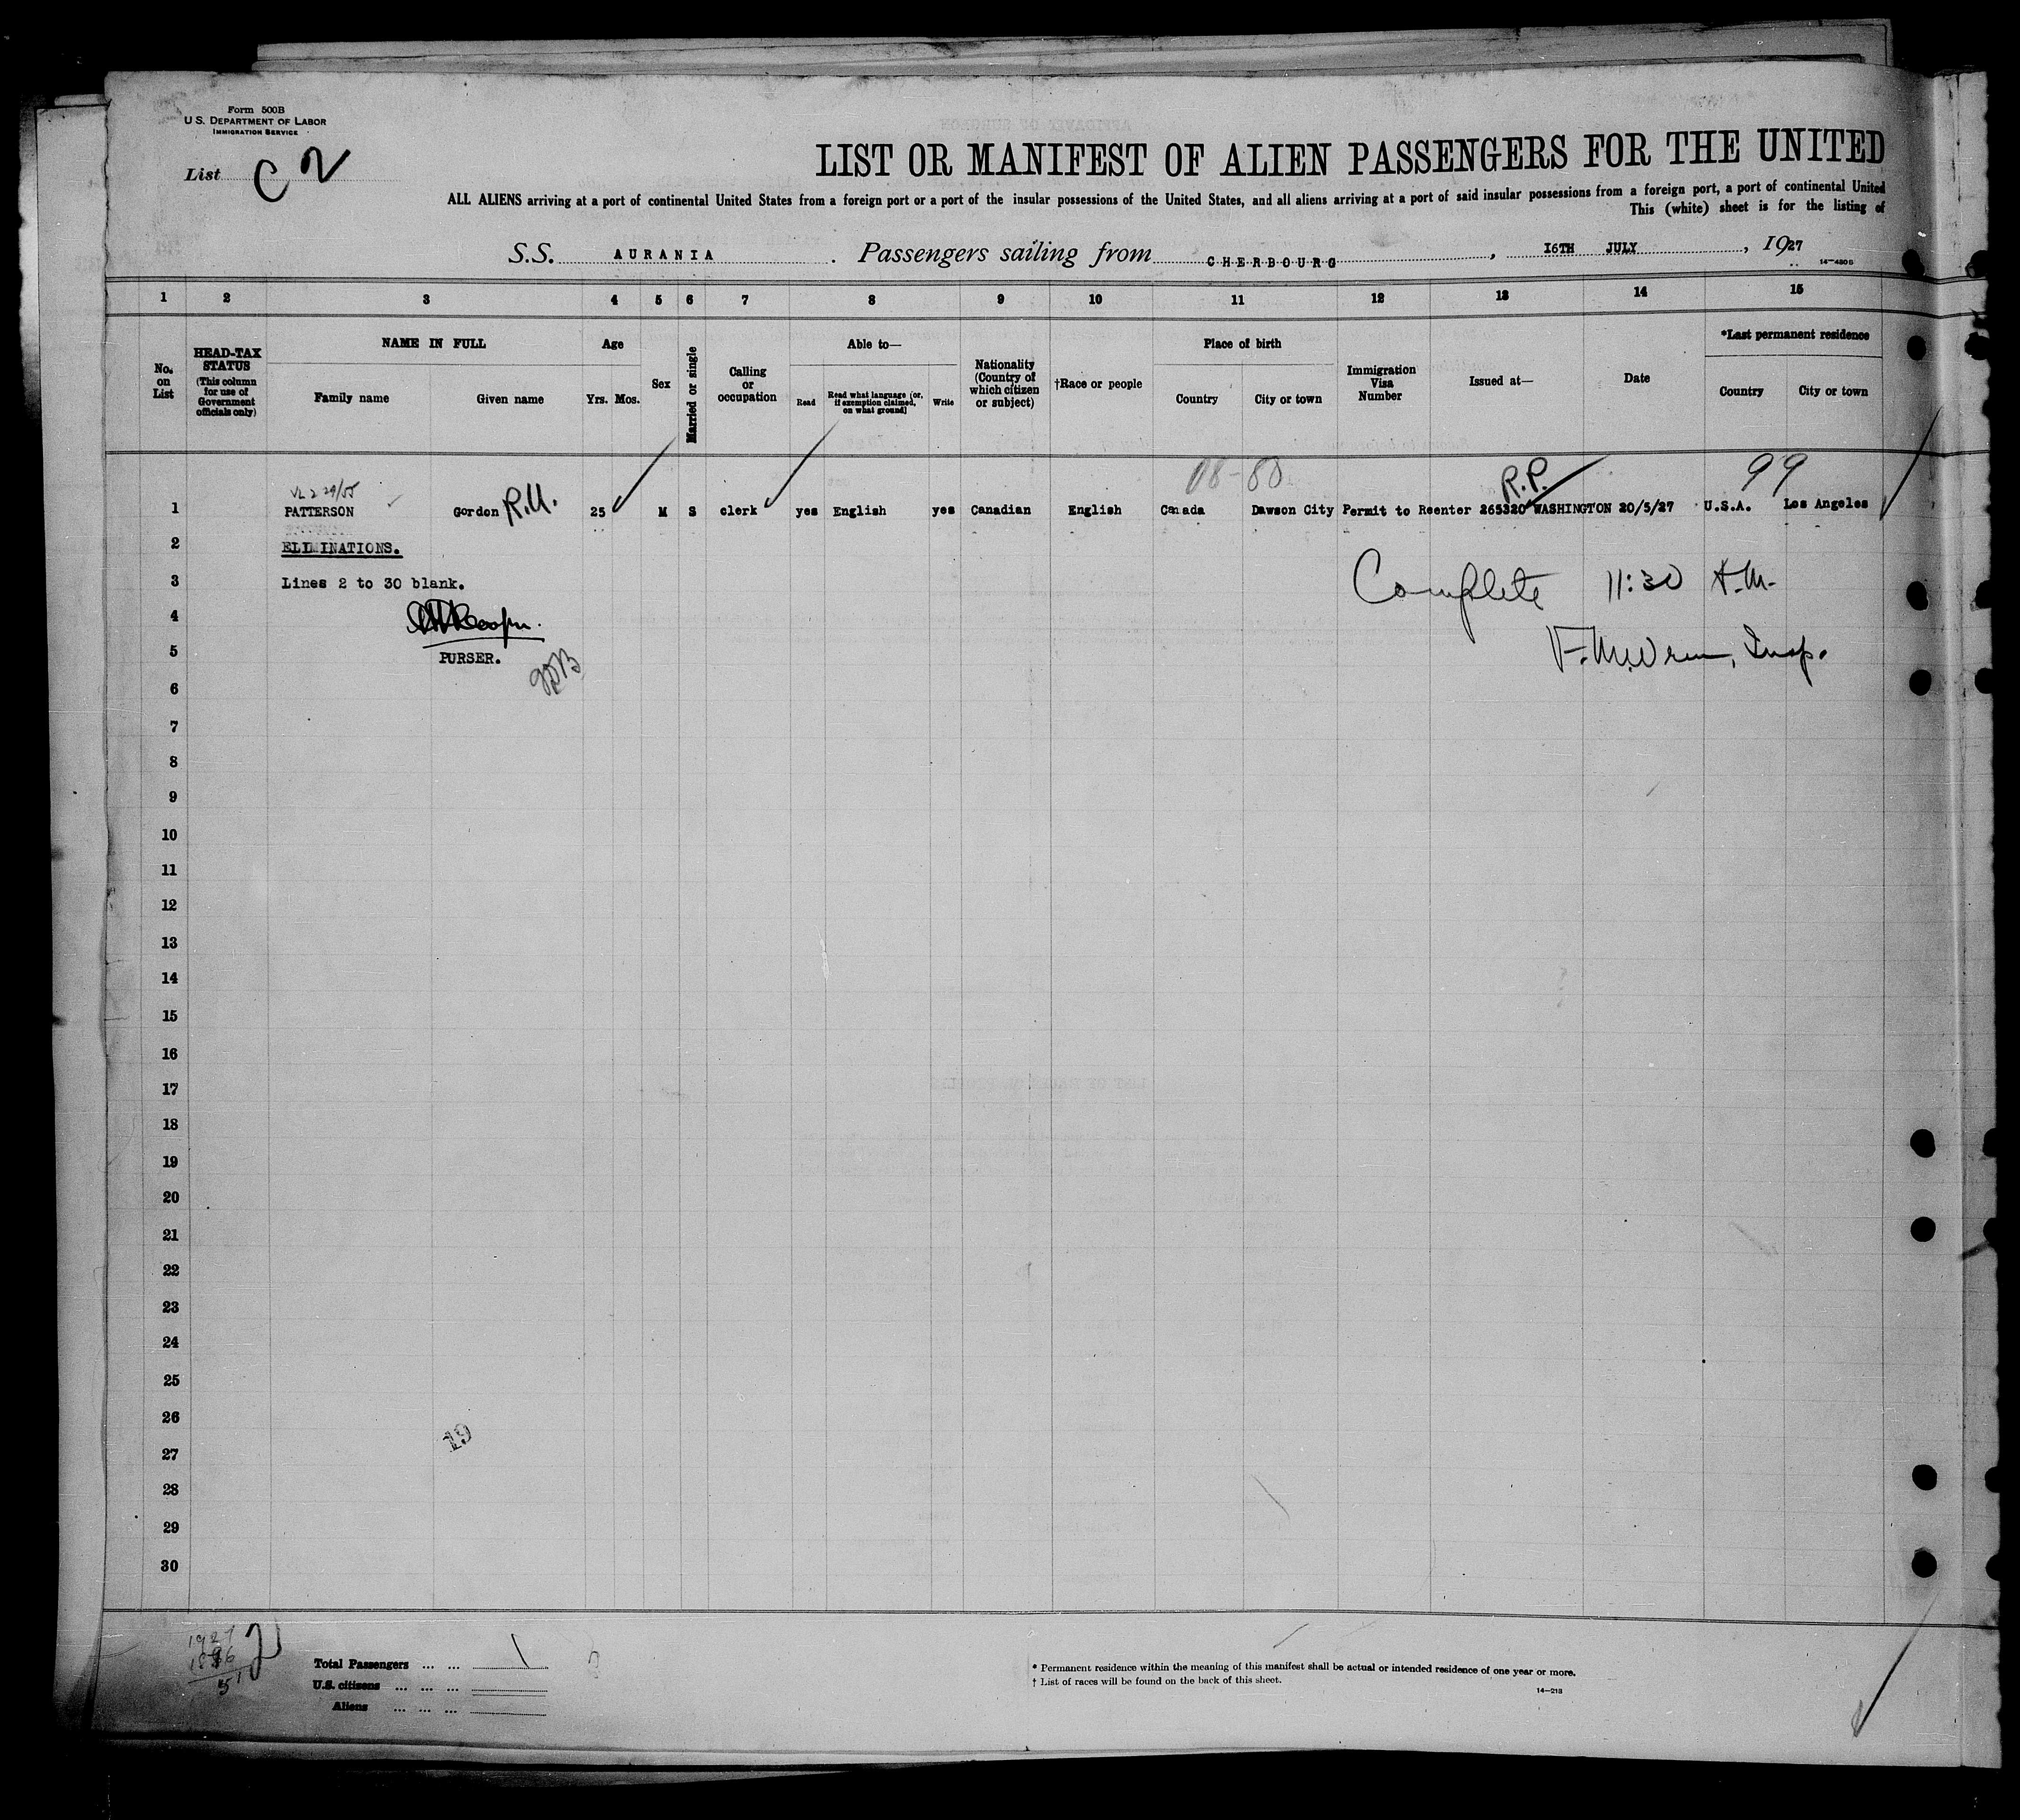 Form 500B
U.S. DEPARTMENT OF LABOR
IMMIGRATION SERVICE
List C 2
LIST OR MANIFEST OF ALIEN PASSENGERS FOR THE UNITED
ALL ALIENS arriving at a port of continental United States from a foreign port or a port of the insular possessions of the United States, and all aliens arriving at a port of said insular possessions from a foreign port, a port of continental United
This (white) sheet is for the listing of
S.S. AURANIA. Passengers sailing from CHERBOURG, 16TH JULY, 1927
14-4305
1 2 3 4 5 6 7 8 9 10 11 12 13 14 15
No. on List
HEAD-TAX STATUS
(This column for use of Government officials only)
NAME IN FULL
Family name Given name
Age
Yrs. Mos.
Sex
Married or single
Calling or occupation
Able to—
Read
Read what language [or, if exemption claimed, on what ground]
Write
Nationality (Country of which citizen or subject)
†Race or people
Place of birth
Country City or town
Immigration Visa Number
Issued at—
Date
*Last permanent residence
Country City or town
08-80 R.P. 99
1 PATTERSON Gordon R.U. 25 M S clerk yes English yes Canadian English Canada Dawson City Permit to Reenter 265320 WASHINGTON 20/5/27 U.S.A. Los Angeles
2 ELIMINATIONS.
3 Lines 2 to 30 blank. Complete 11:30 A.M.
4
5 PURSER. Insp.
6
7
8
9
10
11
12
13
14
15
16
17
18
19
20
21
22
23
24
25
26
19
27
28
29
30
1927
Total Passengers ... ... 1
U.S. citizens ... ... ...
Aliens ... ... ...
51
* Permanent residence within the meaning of this manifest shall be actual or intended residence of one year or more.
† List of races will be found on the back of this sheet.
14-213